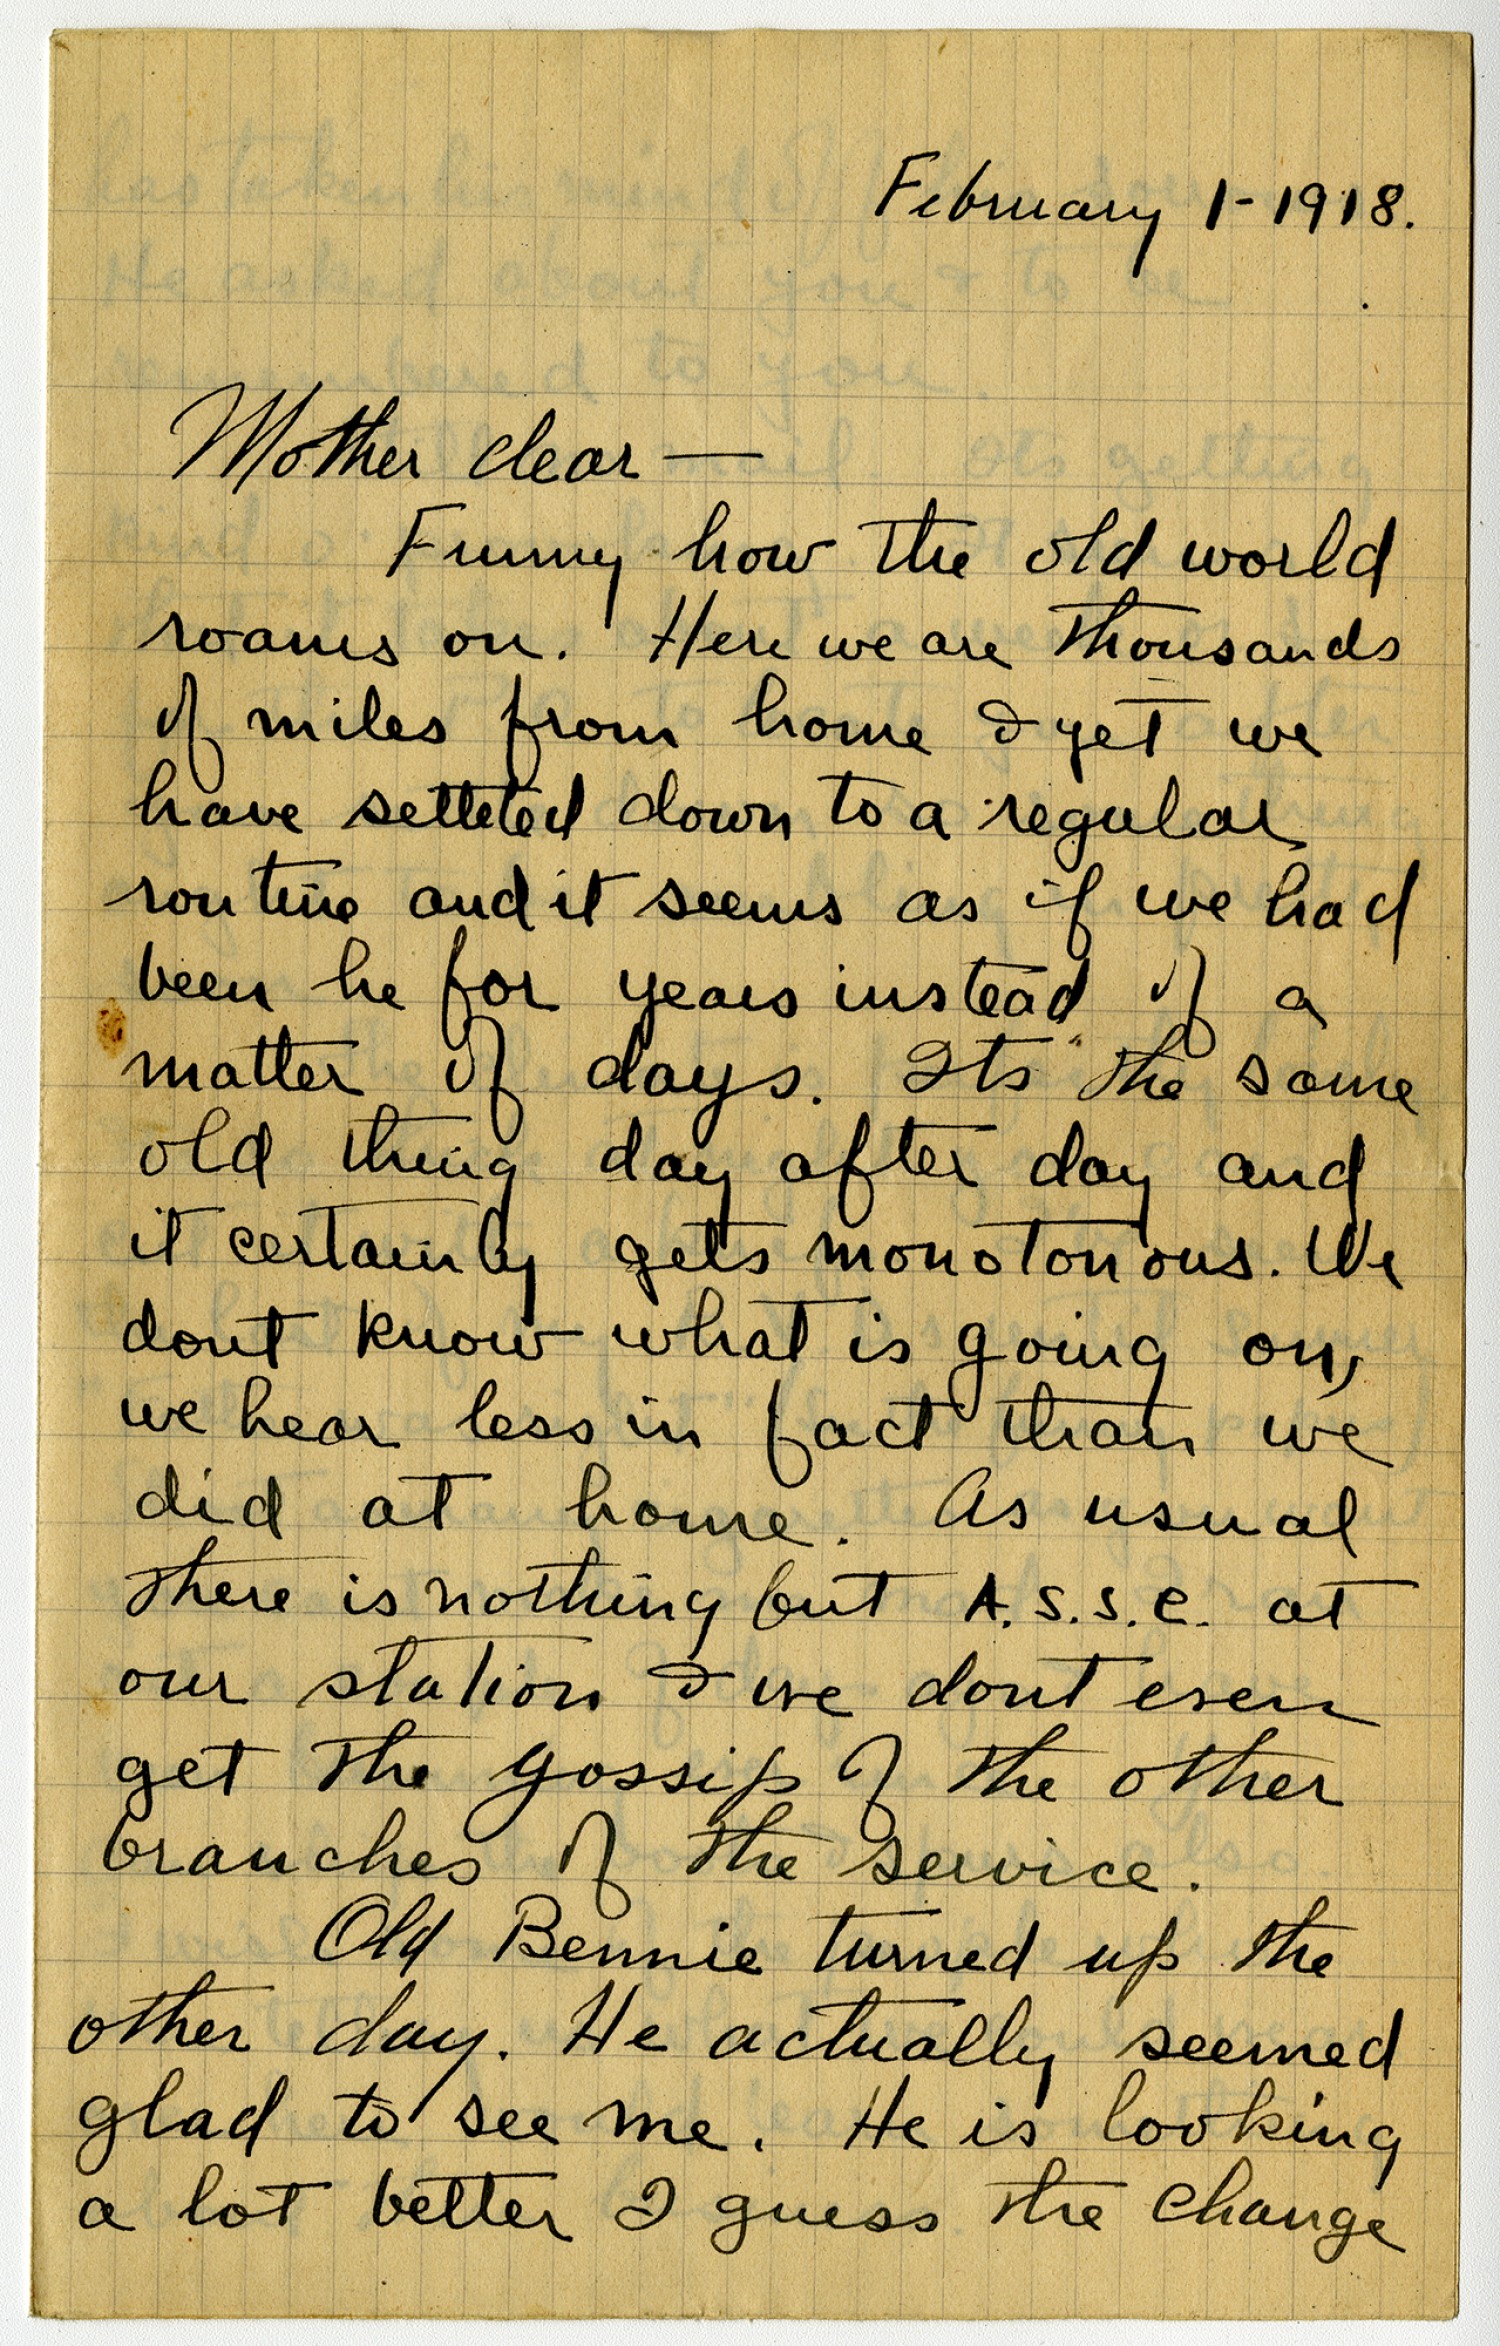 February 1-1918.
Mother dear —
Funny how the old world
roams on. Here we are thousands
of miles from home & yet we
have setteled down to a regular
routine and it seems as if we had
been he for years instead of a
matter of days. Its the same
old thing day after day and
it certainly gets monotonous. We
dont know what is going on,
we hear less in fact than we
did at home. As usual
there is nothing but A.S.S.C. at
our station & we dont even
get the gossip of the other
branches of the service.
Old Bennie turned up the
other day. He actually seemed
glad to see me. He is looking
a lot better I guess the change